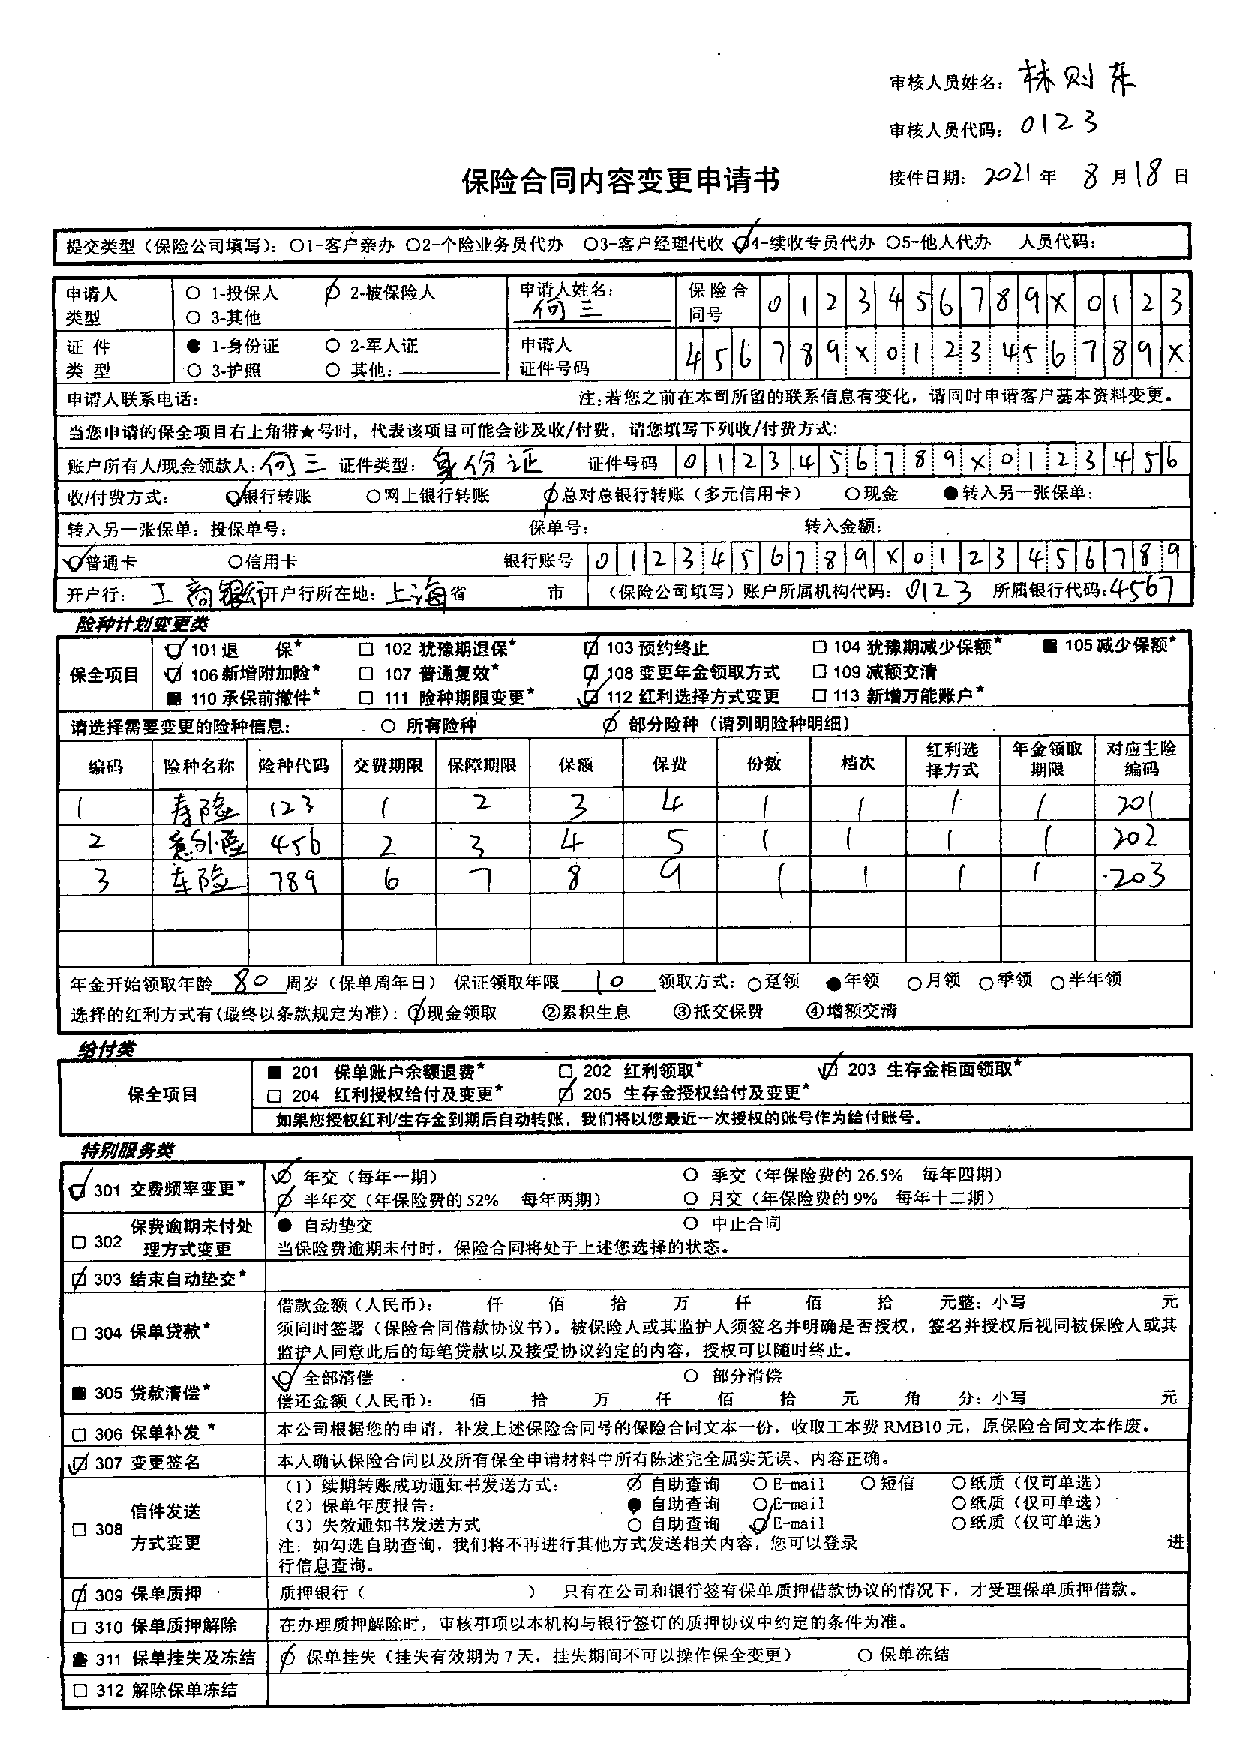 审核人员姓名：林则东
审核人员代码：0123
保险合同内容变更申请书
接件日期：2021年 8月18日
提交类型（保险公司填写）：○1-客户亲办 ○2-个险业务员代办 ○3-客户经理代收 ☑4-续收专员代办 ○5-他人代办 人员代码：
申请人类型 ○ 1-投保人 ∅ 2-被保险人 ○ 3-其他 申请人姓名：何三 保险合同号 0123456789X0123
证件类型 ● 1-身份证 ○ 2-军人证 ○ 3-护照 ○ 其他： 申请人证件号码 456789X0123456789X
申请人联系电话： 注：若您之前在本司所留的联系信息有变化，请同时申请客户基本资料变更。
当您申请的保全项目右上角带★号时，代表该项目可能会涉及收/付费，请您填写下列收/付费方式：
账户所有人/现金领款人：何三 证件类型：身份证 证件号码 0123456789X0123456
收/付费方式： ☑银行转账 ○网上银行转账 ∅总对总银行转账（多元信用卡） ○现金 ●转入另一张保单：
转入另一张保单：投保单号： 保单号： 转入金额：
☑普通卡 ○信用卡 银行账号 0123456789X0123456789
开户行：工商银行 开户行所在地：上海省 市 （保险公司填写）账户所属机构代码：0123 所属银行代码：4567
险种计划变更类
保全项目
☑ 101 退 保* □ 102 犹豫期退保* ☑ 103 预约终止 □ 104 犹豫期减少保额* ■ 105 减少保额*
☑ 106 新增附加险* □ 107 普通复效* ☑ 108 变更年金领取方式 □ 109 减额交清
■ 110 承保前撤件* □ 111 险种期限变更* ☑ 112 红利选择方式变更 □ 113 新增万能账户*
请选择需要变更的险种信息： ○ 所有险种 ∅ 部分险种（请列明险种明细）
编码 险种名称 险种代码 交费期限 保障期限 保额 保费 份数 档次 红利选择方式 年金领取期限 对应主险编码
1 寿险 123 1 2 3 4 1 1 1 1 201
2 意外险 456 2 3 4 5 1 1 1 1 202
3 车险 789 6 7 8 9 1 1 1 1 203
年金开始领取年龄 80 周岁（保单周年日） 保证领取年限 10 领取方式：○趸领 ●年领 ○月领 ○季领 ○半年领
选择的红利方式有(最终以条款规定为准)：①现金领取 ②累积生息 ③抵交保费 ④增额交清
给付类
保全项目
■ 201 保单账户余额退费* □ 202 红利领取* ☑ 203 生存金柜面领取*
□ 204 红利授权给付及变更* ☑ 205 生存金授权给付及变更*
如果您授权红利/生存金到期后自动转账，我们将以您最近一次授权的账号作为给付账号。
特别服务类
☑ 301 交费频率变更* ☑ 年交（每年一期） ○ 季交（年保险费的 26.5% 每年四期）
∅ 半年交（年保险费的 52% 每年两期） ○ 月交（年保险费的 9% 每年十二期）
□ 302 保费逾期未付处理方式变更 ● 自动垫交 ○ 中止合同
当保险费逾期未付时，保险合同将处于上述您选择的状态。
☑ 303 结束自动垫交*
□ 304 保单贷款* 借款金额（人民币）： 仟 佰 拾 万 仟 佰 拾 元整：小写 元
须同时签署（保险合同借款协议书）。被保险人或其监护人须签名并明确是否授权，签名并授权后视同被保险人或其
监护人同意此后的每笔贷款以及接受协议约定的内容，授权可以随时终止。
■ 305 贷款清偿* ☑ 全部清偿 ○ 部分清偿
偿还金额（人民币）： 佰 拾 万 仟 佰 拾 元 角 分：小写 元
□ 306 保单补发 * 本公司根据您的申请，补发上述保险合同号的保险合同文本一份，收取工本费 RMB10 元，原保险合同文本作废。
☑ 307 变更签名 本人确认保险合同以及所有保全申请材料中所有陈述完全属实无误、内容正确。
□ 308 信件发送方式变更 （1）续期转账成功通知书发送方式： ∅ 自助查询 ○E-mail ○短信 ○纸质（仅可单选）
（2）保单年度报告： ● 自助查询 ○E-mail ○纸质（仅可单选）
（3）失效通知书发送方式 ○ 自助查询 ☑E-mail ○纸质（仅可单选）
注：如勾选自助查询，我们将不再进行其他方式发送相关内容，您可以登录 进
行信息查询。
☑ 309 保单质押 质押银行（ ） 只有在公司和银行签有保单质押借款协议的情况下，才受理保单质押借款。
□ 310 保单质押解除 在办理质押解除时，审核事项以本机构与银行签订的质押协议中约定的条件为准。
■ 311 保单挂失及冻结 ∅ 保单挂失（挂失有效期为 7 天，挂失期间不可以操作保全变更） ○ 保单冻结
□ 312 解除保单冻结